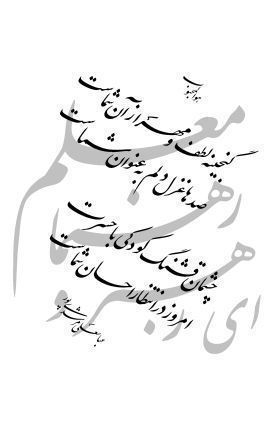 هوالمحبوب
گنجینه لطف و مهر از آن شماست
صدها غزل دلم به عنوان شماست
چشمان قشنگ کودکی با حسرت
امروز در انتظار احسان شماست
معلم
رهنما
ای رهبر و